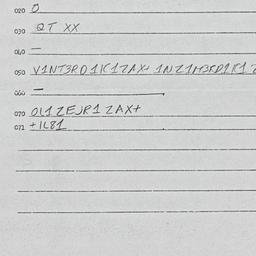 020 O
030 QT XX
040 —
050 V1NT3RD1K1ZAX+ 1NZ1M3RD1K1Z
060 —
070 OL1ZEJR1 ZAX+
071 +1L81